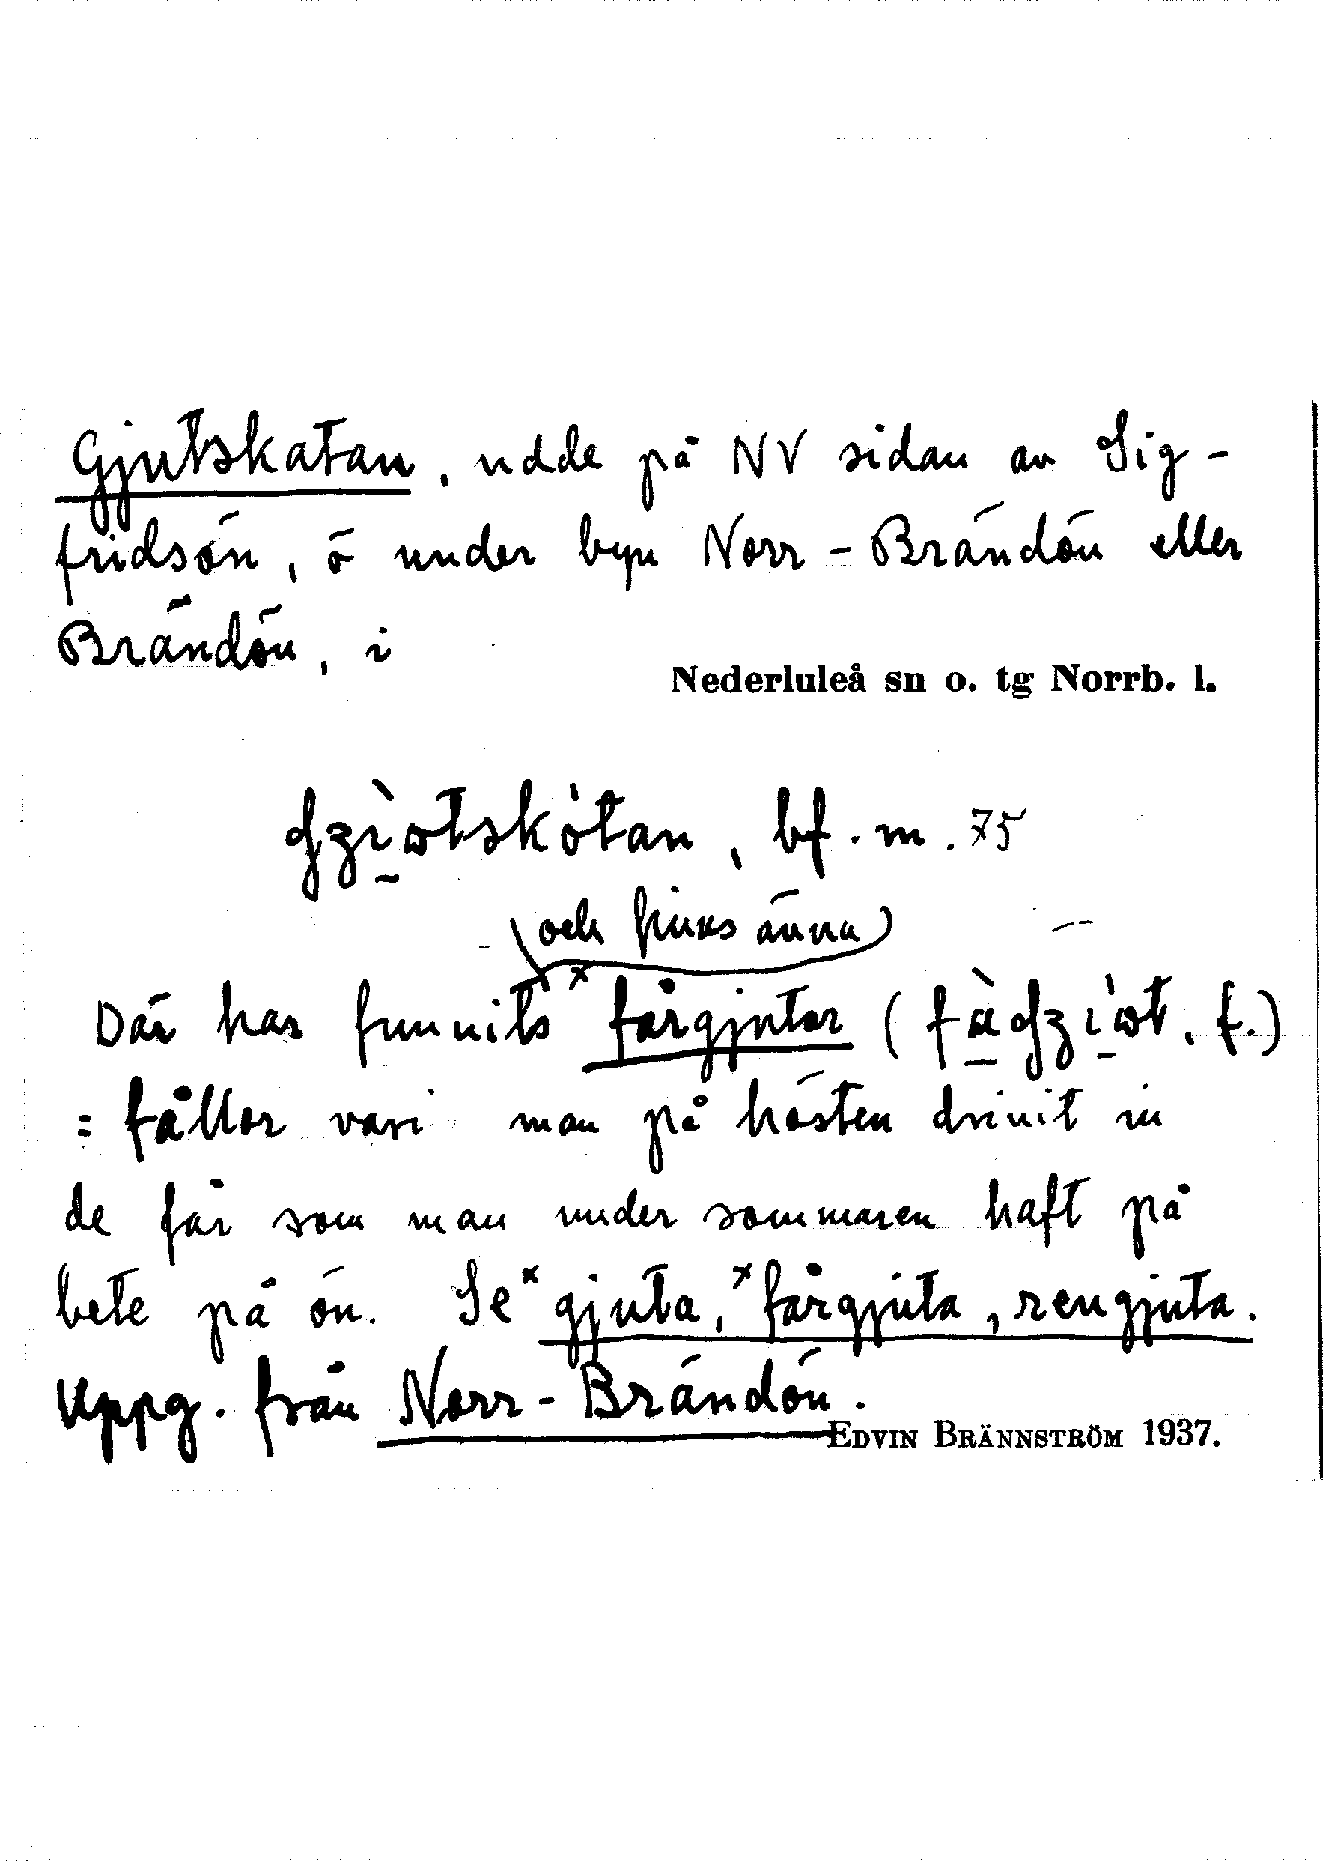 Gjutskatan, udde på NV sidan av Sig-
fridsön, ö under byn Norr-Brändön eller
Brändön, i
Nederluleå sn o. tg Norrb. l.
, bf. m. 75
(och finns ännu)
Där har funnits ˣfårgjutor ( , f.)
= fållor vari man på hösten drivit in
de får som man under sommaren haft på
bete på ön. Se ˣgjuta, ˣfårgjuta, rengjuta.
Uppg. från Norr-Brändön.
EDVIN BRÄNNSTRÖM 1937.